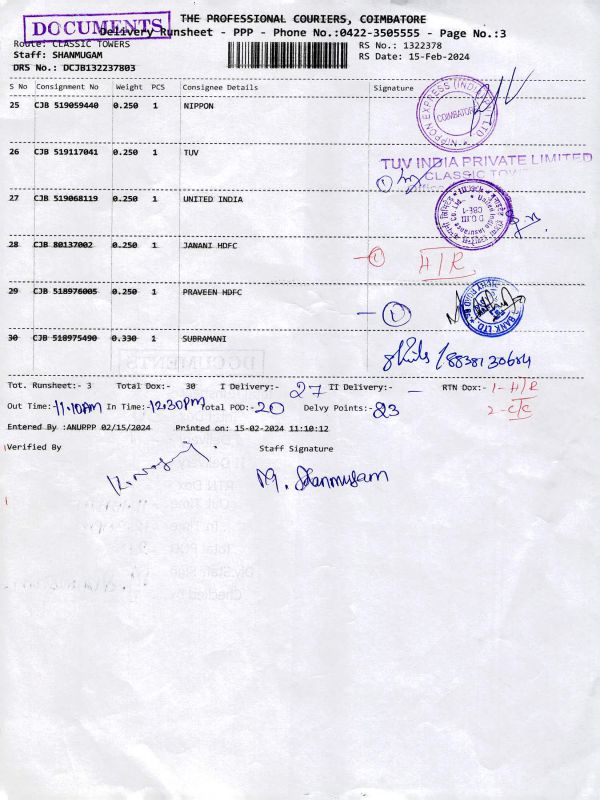 DOCUMENTS
THE PROFESSIONAL COURIERS, COIMBATORE
Delivery Runsheet - PPP - Phone No.:0422-3505555 - Page No.:3
Route: CLASSIC TOWERS
RS No.: 1322378
Staff: SHANMUGAM
RS Date: 15-Feb-2024
DRS No.: DCJB132237803
S No Consignment No Weight PCS Consignee Details Signature
25 CJB 519059440 0.250 1 NIPPON
NIPPON EXPRESS (INDIA) COIMBATORE
26 CJB 519117041 0.250 1 TUV
TUV INDIA PRIVATE LIMITED
CLASSIC TOW
27 CJB 519068119 0.250 1 UNITED INDIA
28 CJB 80137002 0.250 1 JANANI HDFC
1 H/R
29 CJB 518976005 0.250 1 PRAVEEN HDFC
BANK LTD
30 CJB 518975490 0.330 1 SUBRAMANI
8838130684
Tot. Runsheet:- 3 Total Dox:- 30 I Delivery:- 27 II Delivery:- - RTN Dox:- 1-H/R
Out Time:-11.10AM In Time:-12.30PM Total POD:-20 Delvy Points:-23 2-C/C
Entered By :ANUPPP 02/15/2024 Printed on: 15-02-2024 11:10:12
Verified By Staff Signature
M. Shanmugam